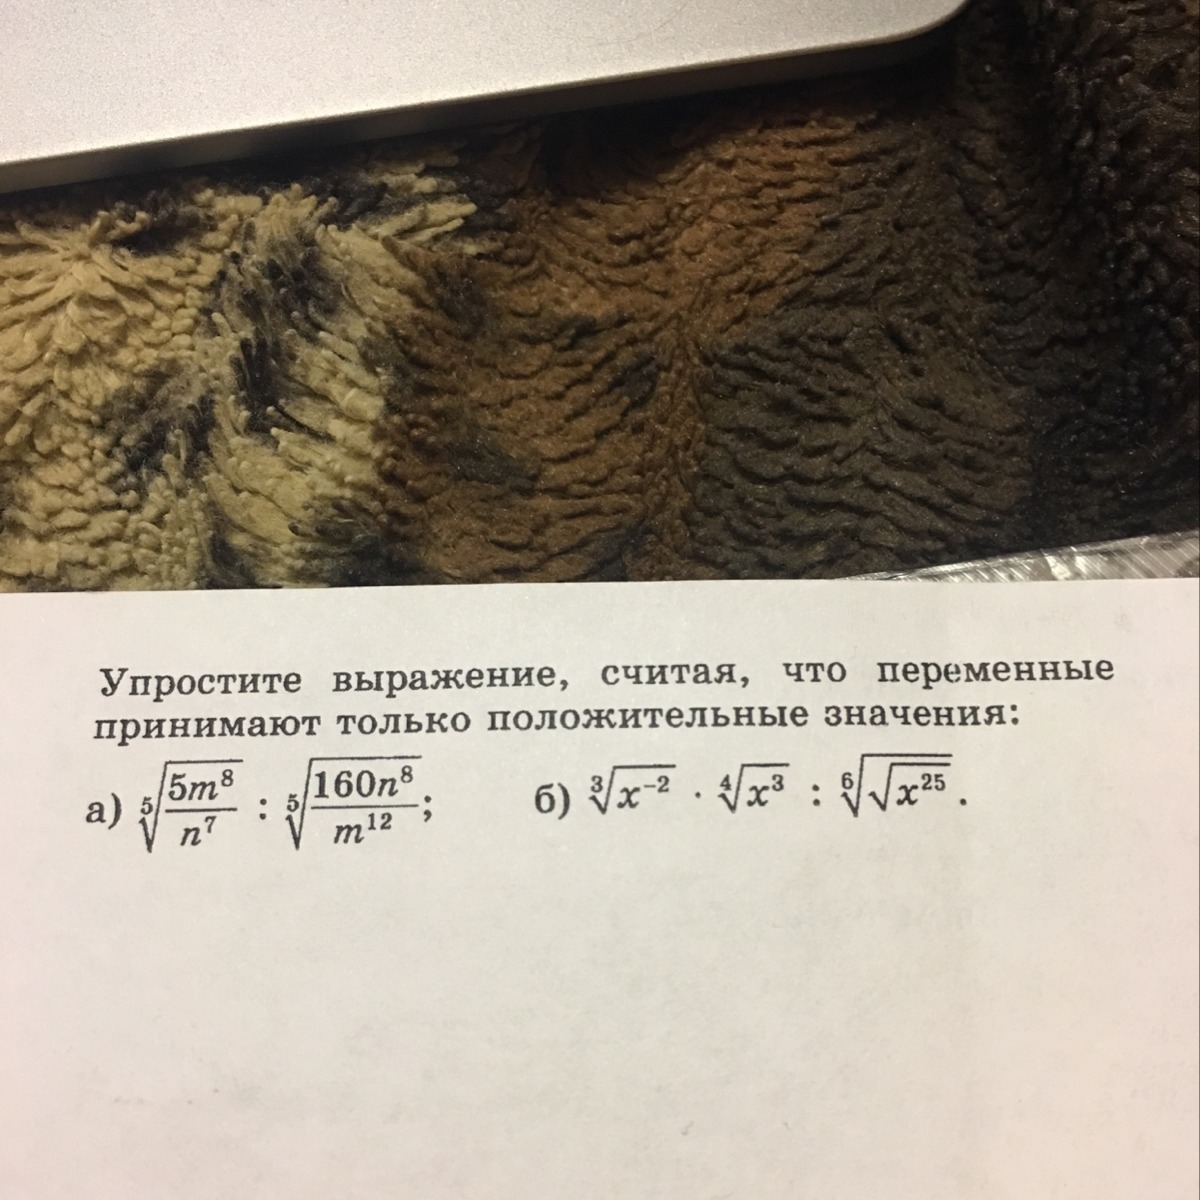 Упростите выражение, считая, что переменные
принимают только положительные значения:
а) ⁵√(5m⁸/n⁷) : ⁵√(160n⁸/m¹²); б) ³√(x⁻²) · ⁴√(x³) : ⁶√(√(x²⁵)).